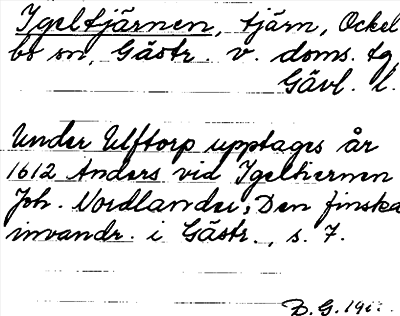 Igeltjärnen, tjärn, Ockel
bo sn, Gästr. v. doms. tg,
Gävl. l.
Under Ulftorp upptages år
1612 Anders vid Igeltiernen
Joh. Nordlander, Den finska
invandr. i Gästr., s. 7.